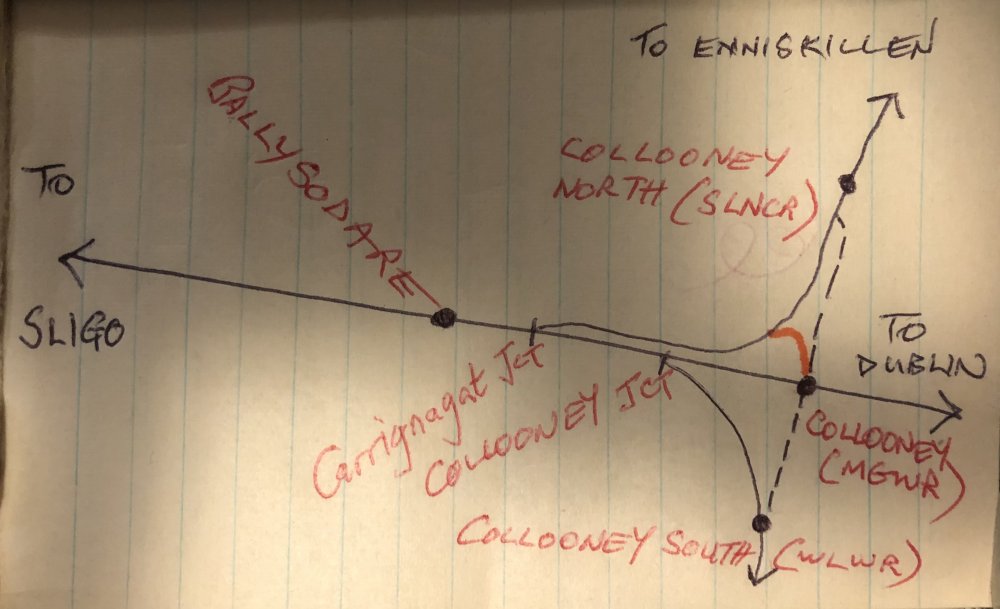 TO ENNISKILLEN
BALLYSODARE
COLLOONEY
NORTH (SLNCR)
TO
SLIGO
TO
DUBLIN
Carrignagat Jct
COLLOONEY JCT
COLLOONEY
(MGWR)
COLLOONEY SOUTH (WLWR)